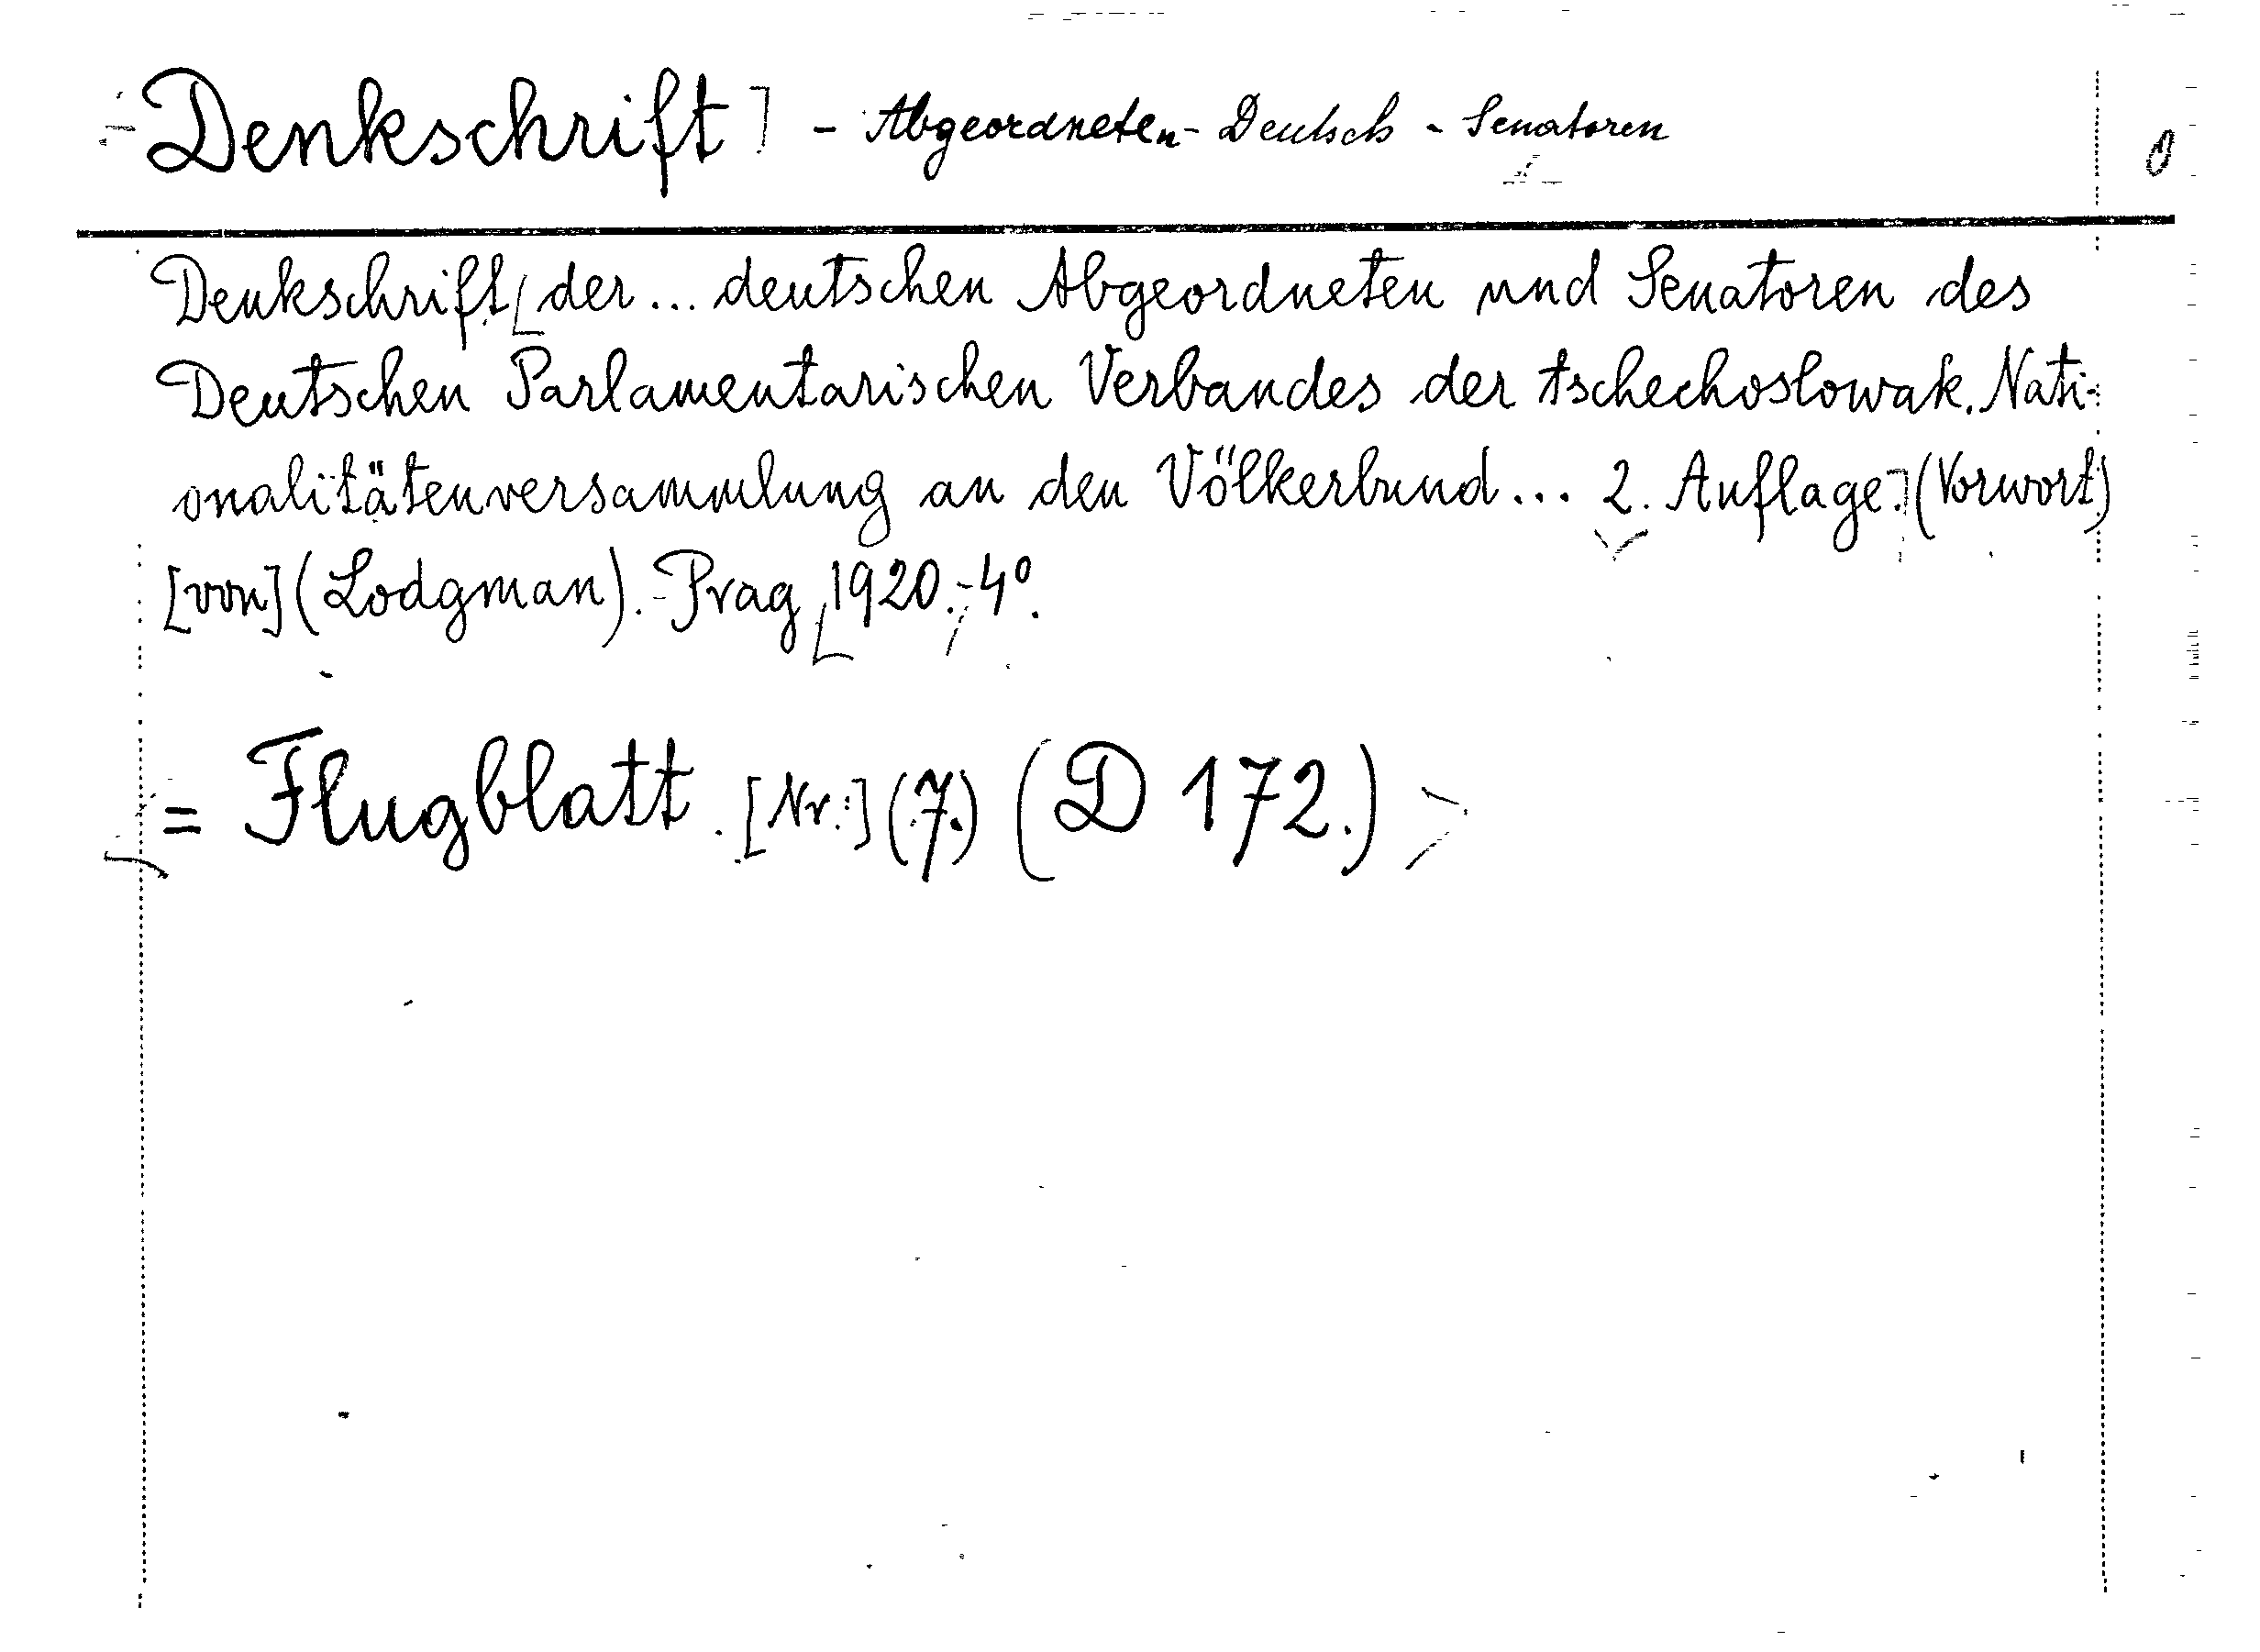 Denkschrift] - Abgeordneten - Deutsch - Senatoren 0
Denkschrift[der ... deutschen Abgeordneten und Senatoren des
Deutschen Parlamentarischen Verbandes der tschechoslowak. Nati-
onalitätenversammlung an den Völkerbund ... 2. Auflage.] (Vorwort)
[von] (Lodgman). - Prag [1920. - 4°.
= Flugblatt. [Nr.:] (7.) (D 172.)